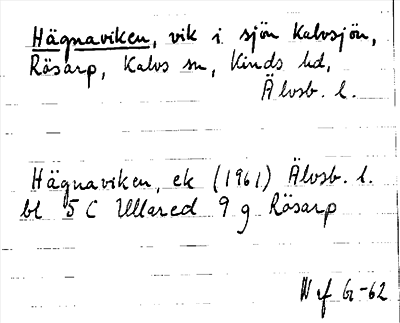 Hägnaviken, vik i sjön Kalvsjön,
Råsarp, Kalvs sn, Kinds hd,
Älvsb. l.
Hägnaviken, ek (1961) Älvsb. l.
bl 5 C Ullared 9 g Råsarp
62